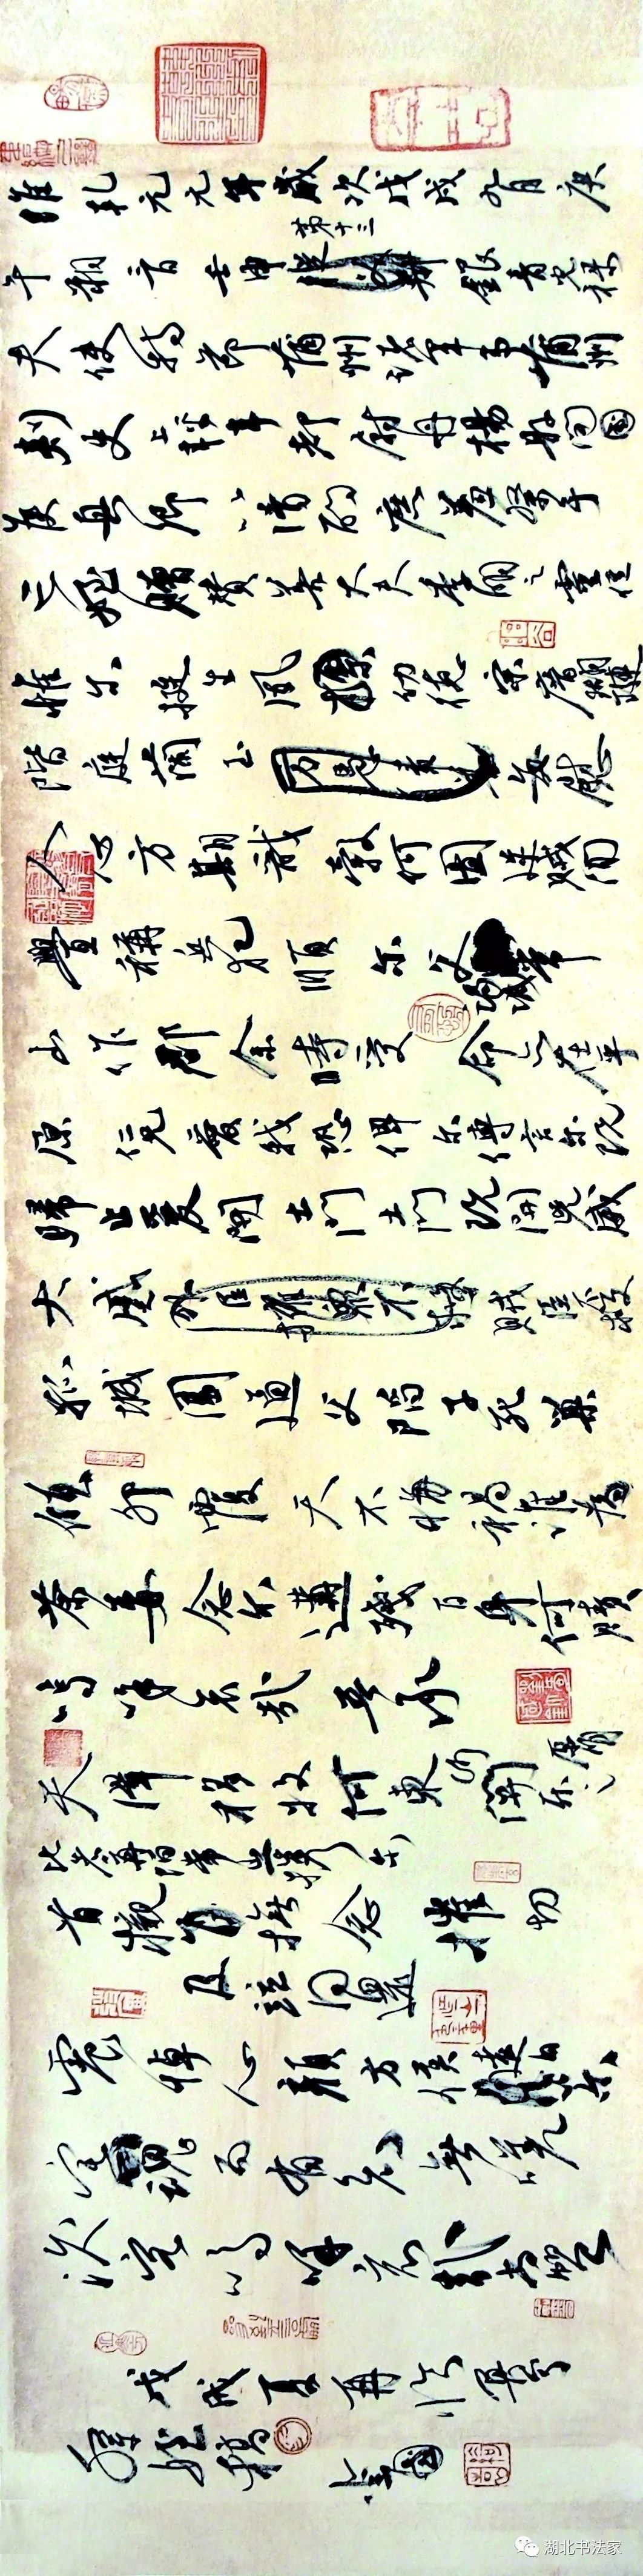 維乾元元年歲次戊戌九月庚
第十三
午朔三日壬申叔銀青光祿
夫使持節蒲州諸軍事蒲州
刺史上輕車都尉丹楊縣開國
侯真卿以清酌庶羞祭于
亡姪贈贊善大夫季明之靈曰
惟爾挺生夙標幼德宗廟瑚璉
階庭蘭玉每慰
人心方期戩穀何圖逆賊間
釁稱兵犯順爾父竭誠常
山作郡余時受命亦在平
原仁兄愛我恐俾爾傳言爾既
歸止爰開土門土門既開凶威
大蹙賊臣不救
孤城圍逼父陷子死巢
傾卵覆天不悔禍誰為
荼毒念爾遘殘百身何贖
嗚呼哀哉吾承
天澤移牧河東近
比者再陷常山攜爾
首櫬撫念摧切
及茲同還
震悼心顏方俟遠日卜爾
宅魂而有知無嗟久
客嗚呼哀哉尚饗
戊戌夏再臨魯公
祭姪稿
湖北书法家